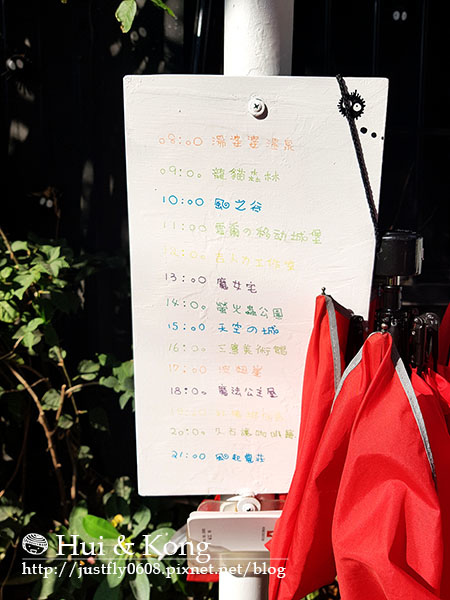 08:00 湯婆婆溫泉
09:00 龍貓森林
10:00 風之谷
11:00 霍爾の移动城堡
12:00
13:00 魔女宅
14:00 螢火蟲公園
15:00 天空の城
16:00 三鷹美術館
17:00 波妞屋
18:00 魔法公主屋
20:00 咖啡廳
21:00 風起農莊
Hui & Kong
http://justfly0608.pixnet.net/blog